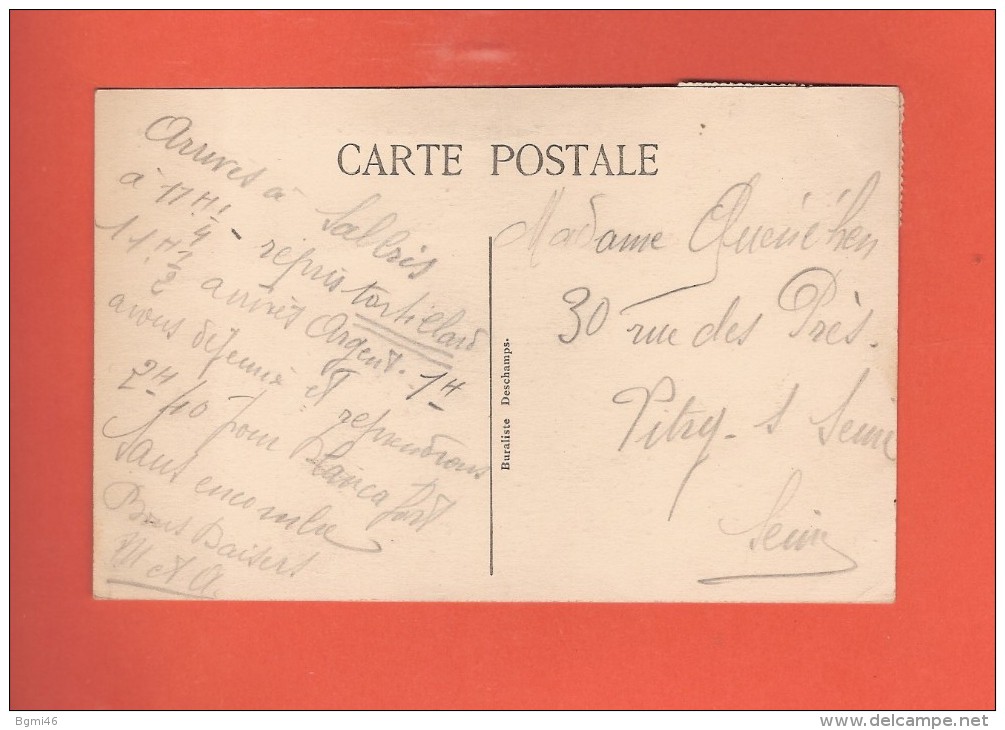 CARTE POSTALE
Arrivés à Salbris
à 11 H 1/4 - repris tortillard
11 H 1/2 arrivés Argent. 1H
avons déjeuné et reprendrons
2H/10 pour Blancafort
Sans encombre
Bons Baisers
M et A.
Buraliste Deschamps.
Madame Quénéhen
30 rue des Près.
Vitry-s Seine
Seine
Bgmi46
www.delcampe.net